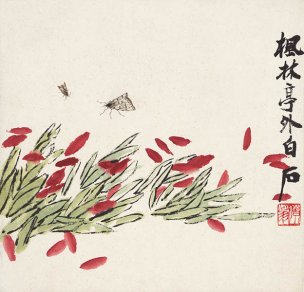 楓林亭外白石